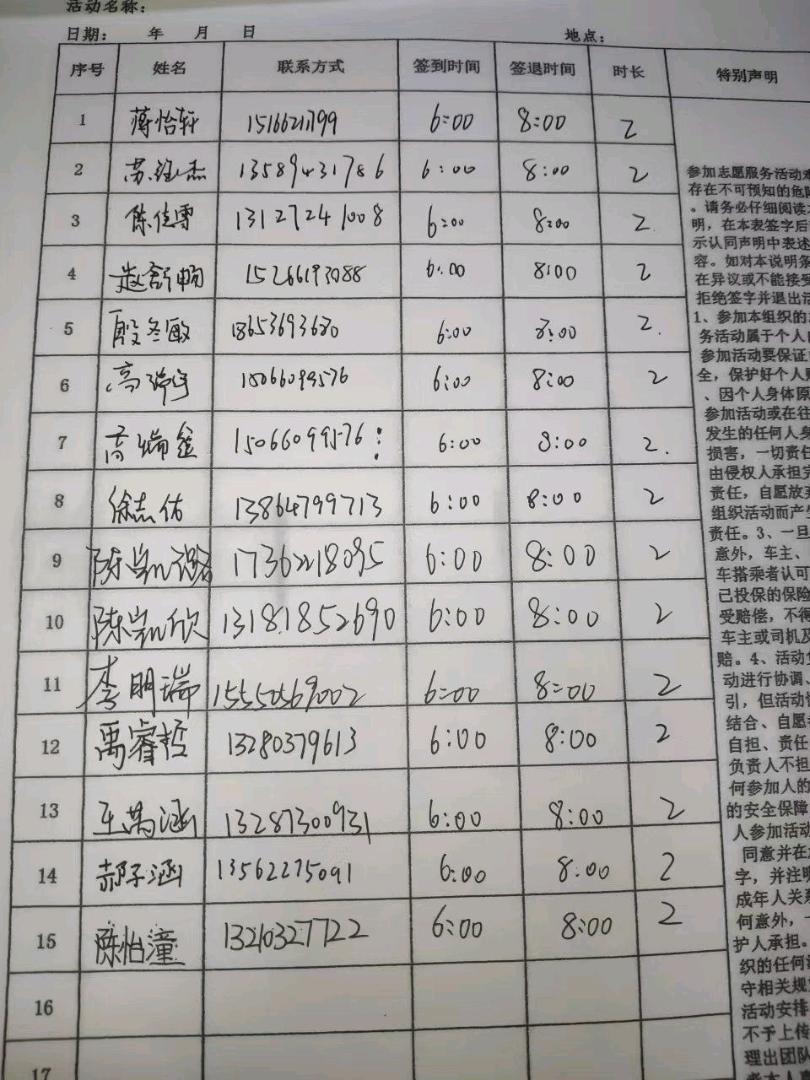 活动名称：
日期： 年 月 日 地点：
序号 姓名 联系方式 签到时间 签退时间 时长 特别声明
1 蒋怡轩 6:00 8:00 2
2 13589431786 6:00 8:00 2
3 陈佳雪 13127241008 6:00 8:00 2
4 赵舒畅 15266193088 6:00 8:00 2
5 殷冬敏 18653693680 6:00 8:00 2.
6 高瑞宇 15066099576 6:00 8:00 2
7 高瑞鑫 15066099576 6:00 8:00 2.
8 徐志佑 13864799713 6:00 8:00 2
9 17362218095 6:00 8:00 2
10 陈凯欣 13181852690 6:00 8:00 2
11 李明瑞 15550569002 6:00 8:00 2
12 禹睿哲 13280379613 6:00 8:00 2
13 13287300931 6:00 8:00 2
14 郝子涵 13562275091 6:00 8:00 2
15 陈怡潼 13210327722 6:00 8:00 2
16
17
参加志愿服务活动
存在不可预知的危
。请务必仔细阅读
明，在本表签字后
示认同声明中表述
容。如对本说明条
在异议或不能接受
拒绝签字并退出活
1、参加本组织的
务活动属于个人
参加活动要保证
全，保护好个人
、因个人身体原
参加活动或在往
发生的任何人身
损害，一切责任
由侵权人承担
责任，自愿放弃
组织活动而产生
责任。3、一旦
意外，车主、
车搭乘者认可
已投保的保险
受赔偿，不得
车主或司机及
赔。4、活动
动进行协调、
引，但活动
结合、自愿
自担、责任
负责人不担
何参加人的
的安全保障
人参加活动
同意并在
字，并注明
成年人关系
何意外，
护人承担。
织的任何
守相关规
活动安排
不予上传
理出团队